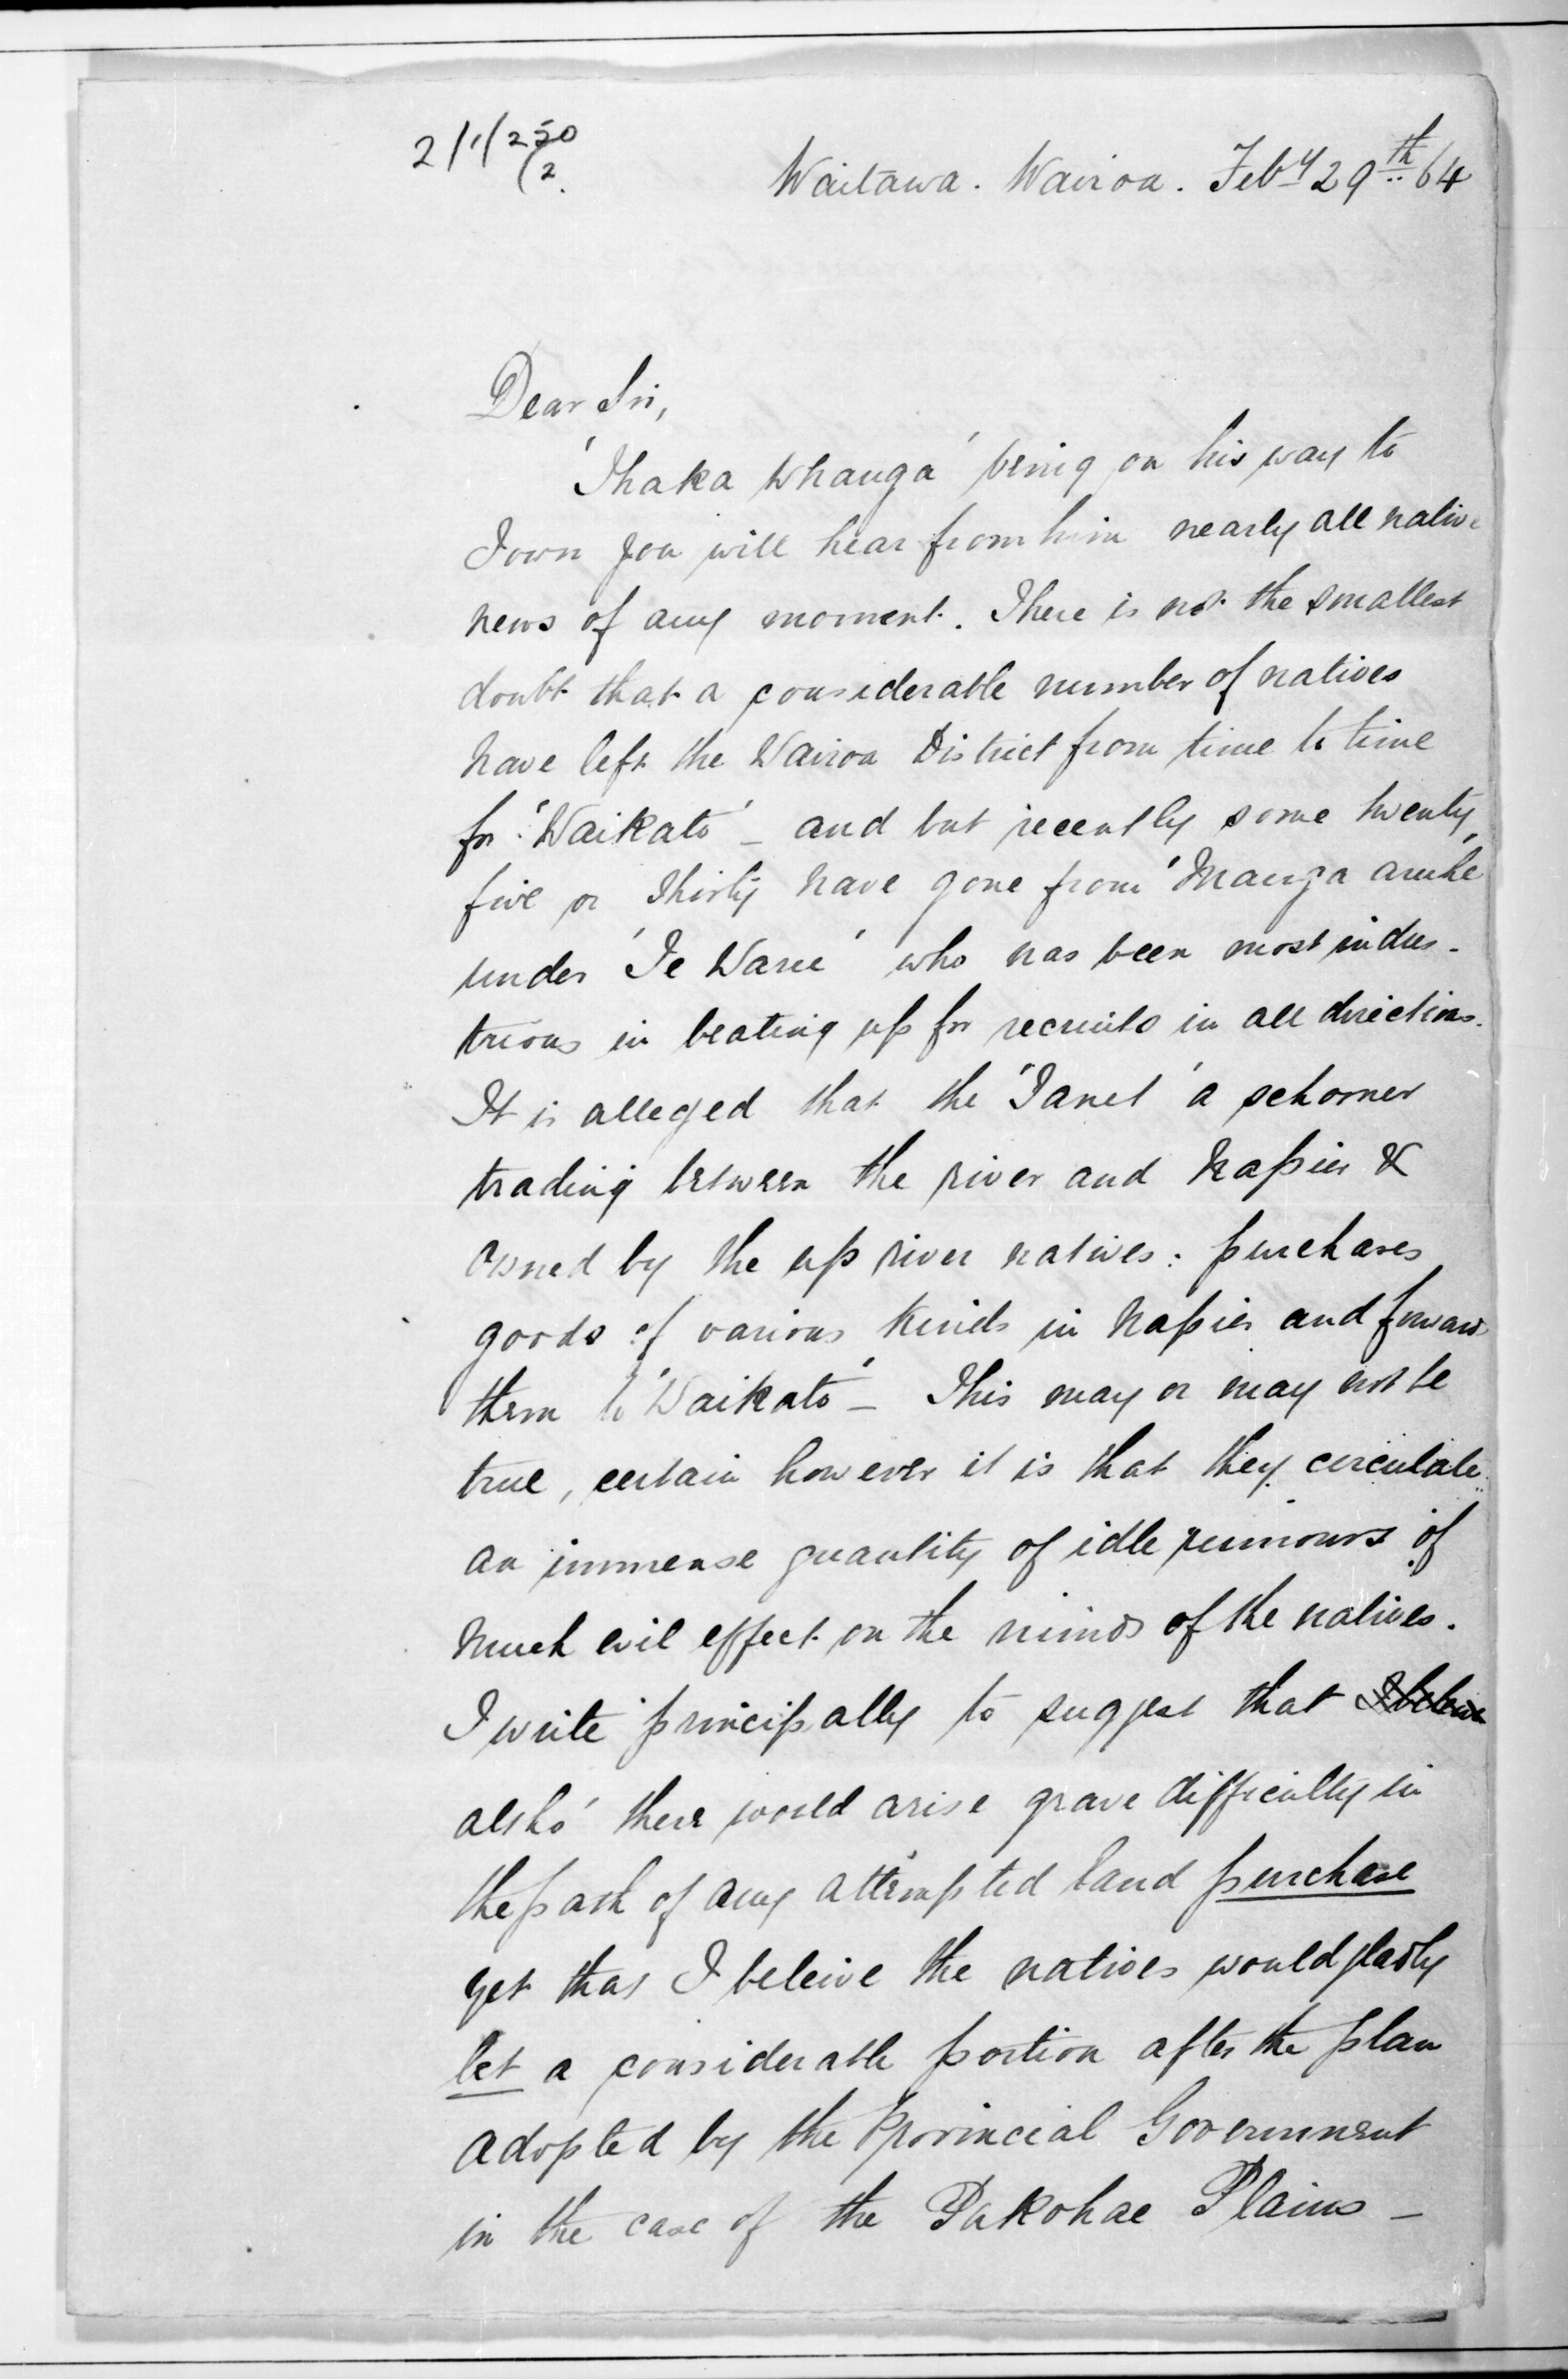 2/1/250
/2.
Waitawa. Wairoa. Feby 29th 64
Dear Sir,
'Ihaka Whanga' being on his way to
Town you will hear from him nearly all native
news of any moment. There is not the smallest
doubt that a considerable number of natives
have left the Wairoa District from time to time
for 'Waikato' – and but recently some twenty
five or thirty have gone from 'Manga aruhe'
under 'Te Waru' who has been most indus-
trious in beating up for recruits in all directions.
It is alleged that the 'Janet' a schooner
trading between the river and Napier &
owned by the up river natives: purchases
goods of various kinds in Napier and forwards
them to 'Waikato' – This may or may not be
true, certain however it is that they circulate
an immense quantity of idle rumours of
much evil effect on the minds of the natives.
I write principally to suggest that I beleive
altho' there would arise grave difficulty in
the path of any attempted land purchase
yet that I beleive the natives would gladly
let a considerable portion after the plan
adopted by the Provincial Government
in the case of the Pakohae Plains –